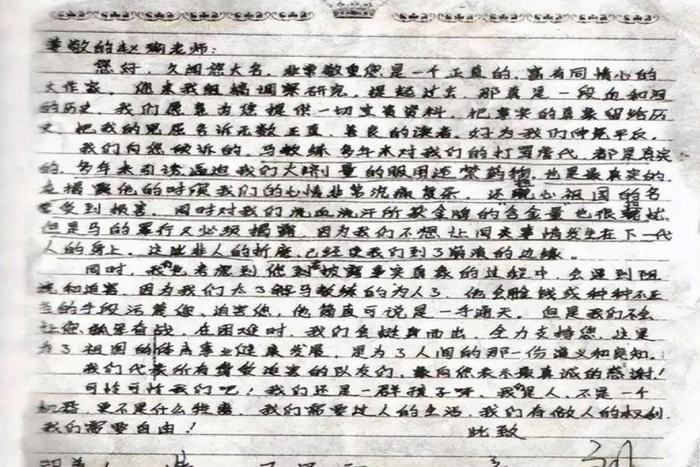 尊敬的赵瑜老师:
您好,久闻您大名,非常敬重您是一个正直的,富有同情心的
大作家,您来我组搞调察研究,提起过去,那真是一段血和泪
的历史,我们愿意为您提供一切宝贵资料,把事实的真象留给历
史,把我的冤屈告诉无数正直、善良的读者,好为我们伸冤平反。
我们向您倾诉的,马教练多年来对我们的打骂虐代,都是真实
的,多年来引诱逼迫我们大剂量的服用违禁药物,也是最真实的。
揭露他的时候我们的心情非常沉痛复杂,还担心祖国的名
誉受到损害,同时对我们流血流汗所获金牌的含金量也很
但是马的罪行又必须揭露,因为我们不想让旧事情发生在下一代
人的身上,这些非人的折磨,已经使我们到了崩溃的边缘。
同时,我也考虑到你到披露事实真象的过程中会遇到阻
和迫害,因为我们太了解马教练的为人了,他会陪钱或种种不正
当的手段污蔑您,迫害您,他简直可说是一手通天。但是我们不会
让您孤军奋战,在困难时,我们会挺身而出,全力支持您,这是
为了祖国的体育事业健康发展,是为了人间的那一份道义和良知。
我们代表所有曾受迫害的队友们,最向您表示最真诚的感谢!
可怜可怜我们吧!我们还是一群孩子呀,我是人,不是一个
机器,更不是什么牲畜,我们需要过人的生活,我们有做人的权利
我们需要自由! 此致